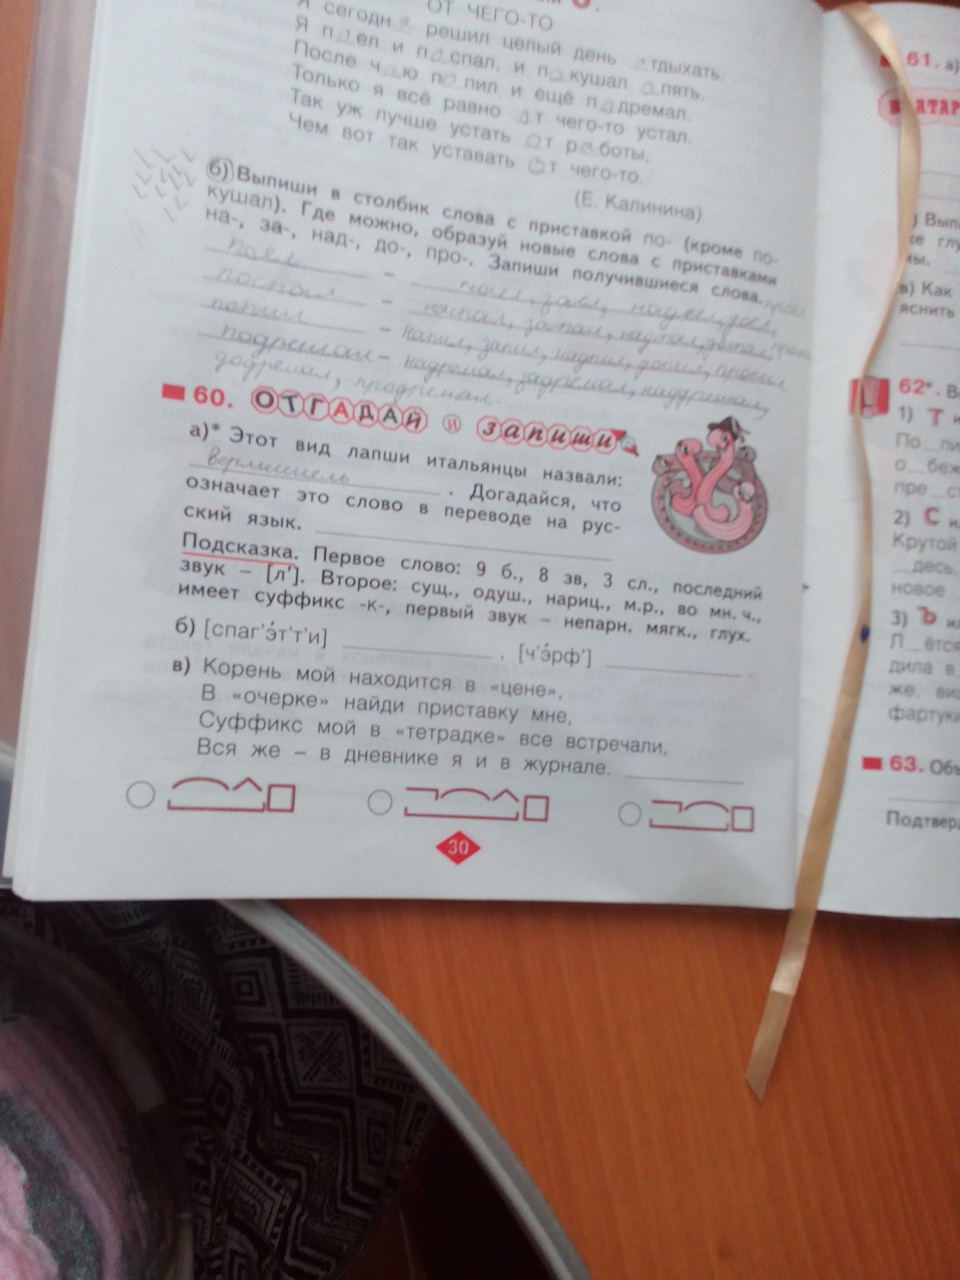 ОТ ЧЕГО-ТО
Я сегодня решил целый день отдыхать.
Я поел и поспал, и покушал опять.
После чаю попил и ещё подремал.
Только я всё равно от чего-то устал.
Так уж лучше устать от работы,
Чем вот так уставать от чего-то.
(Е. Калинина)
б) Выпиши в столбик слова с приставкой по- (кроме по-
кушал). Где можно, образуй новые слова с приставками
на-, за-, над-, до-, про-. Запиши получившиеся слова.
поел –
поспал –
попил – напил, запил, надпил, допил, пропил
подремал –
додремал, продремал.
60. ОТГАДАЙ И ЗАПИШИ
а)* Этот вид лапши итальянцы назвали:
вермишель. Догадайся, что
означает это слово в переводе на рус-
ский язык.
Подсказка. Первое слово: 9 б., 8 зв, 3 сл., последний
звук – [л']. Второе: сущ., одуш., нариц., м.р., во мн. ч.,
имеет суффикс -к-, первый звук – непарн. мягк., глух.
б) [спаг'э́т'т'и] . [ч'э́рф'] .
в) Корень мой находится в «цене»,
В «очерке» найди приставку мне,
Суффикс мой в «тетрадке» все встречали,
Вся же – в дневнике я и в журнале.
30
61. а)
) Вып
в) Как
яснить
62*. В
1) Т и
По_пи
о_беж
пре_ст
2) С и
Крутой
_десь,
новое
3) Ъ и
Л_ётся
дила в
фартуки
63. Объ
Подтверд